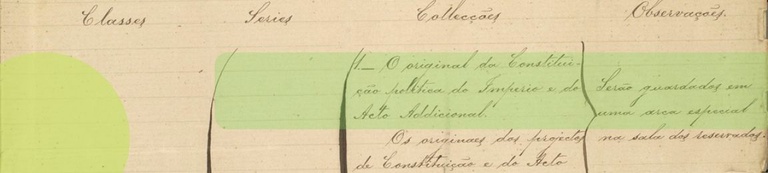 Classes Series Collecções Observações.
1.— O original da Constitui-
ção politica do Imperio e do
Acto Addicional.
Os originaes dos projectos
de Constituição e do Acto
Serão guardados em
uma arca especial
na sala dos reservados.